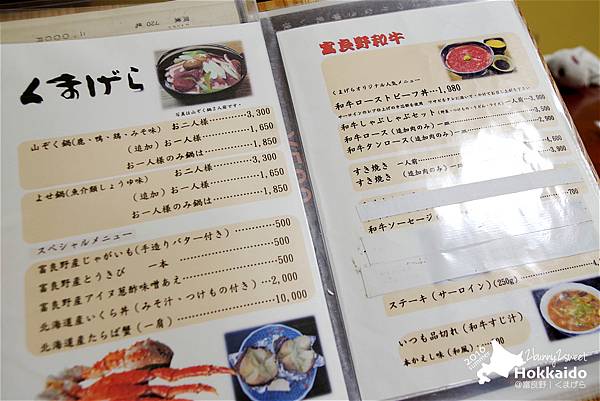 くまげら
写真は山ぞく鍋2人前です。
山ぞく鍋(鹿・鴨・鶏・みそ味) お一人様……3,300
(追加) お一人様……1,650
お一人様のみ鍋は……1,850
よせ鍋(魚介類しょうゆ味) お二人様……3,300
(追加) お一人様……1,650
お一人様のみ鍋は……1,850
スペシャルメニュー
富良野産じゃがいも(手造りバター付き)……500
富良野産とうきび 一本……500
富良野産アイヌ葱酢味噌あえ……500
北海道産いくら丼(みそ汁・つけもの付き)…2,000
北海道産たらば蟹(一肩)……10,000
富良野和牛
くまげらオリジナル人気メニュー
和牛ローストビーフ丼…1,980
和牛しゃぶしゃぶセット
一人前…3,000
和牛ロース(追加肉のみ)一皿
和牛タンロース(追加肉のみ)一皿
すき焼き 一人前
すき焼き (追加肉のみ)
700
和牛ソーセージ
ステーキ(サーロイン)(250g)
いつも品切れ(和牛すじ汁)
本かえし味(和風)
2016
2bunny2sweet
Hokkaido
@富良野|くまげら